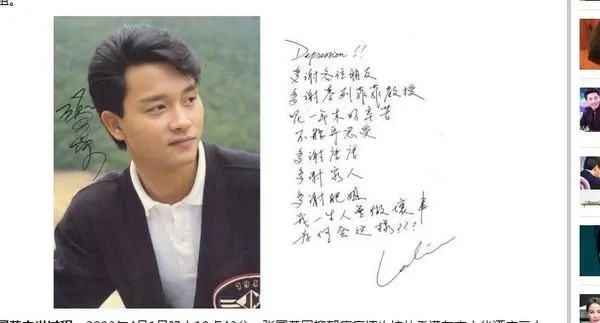 Depression!!
多謝各位朋友
多謝李列菲菲教授
呢一年來好辛苦
不能再忍受
多謝唐唐
多謝家人
多謝肥姐
我一生人無做壞事
為何會這樣???
Leslie
195